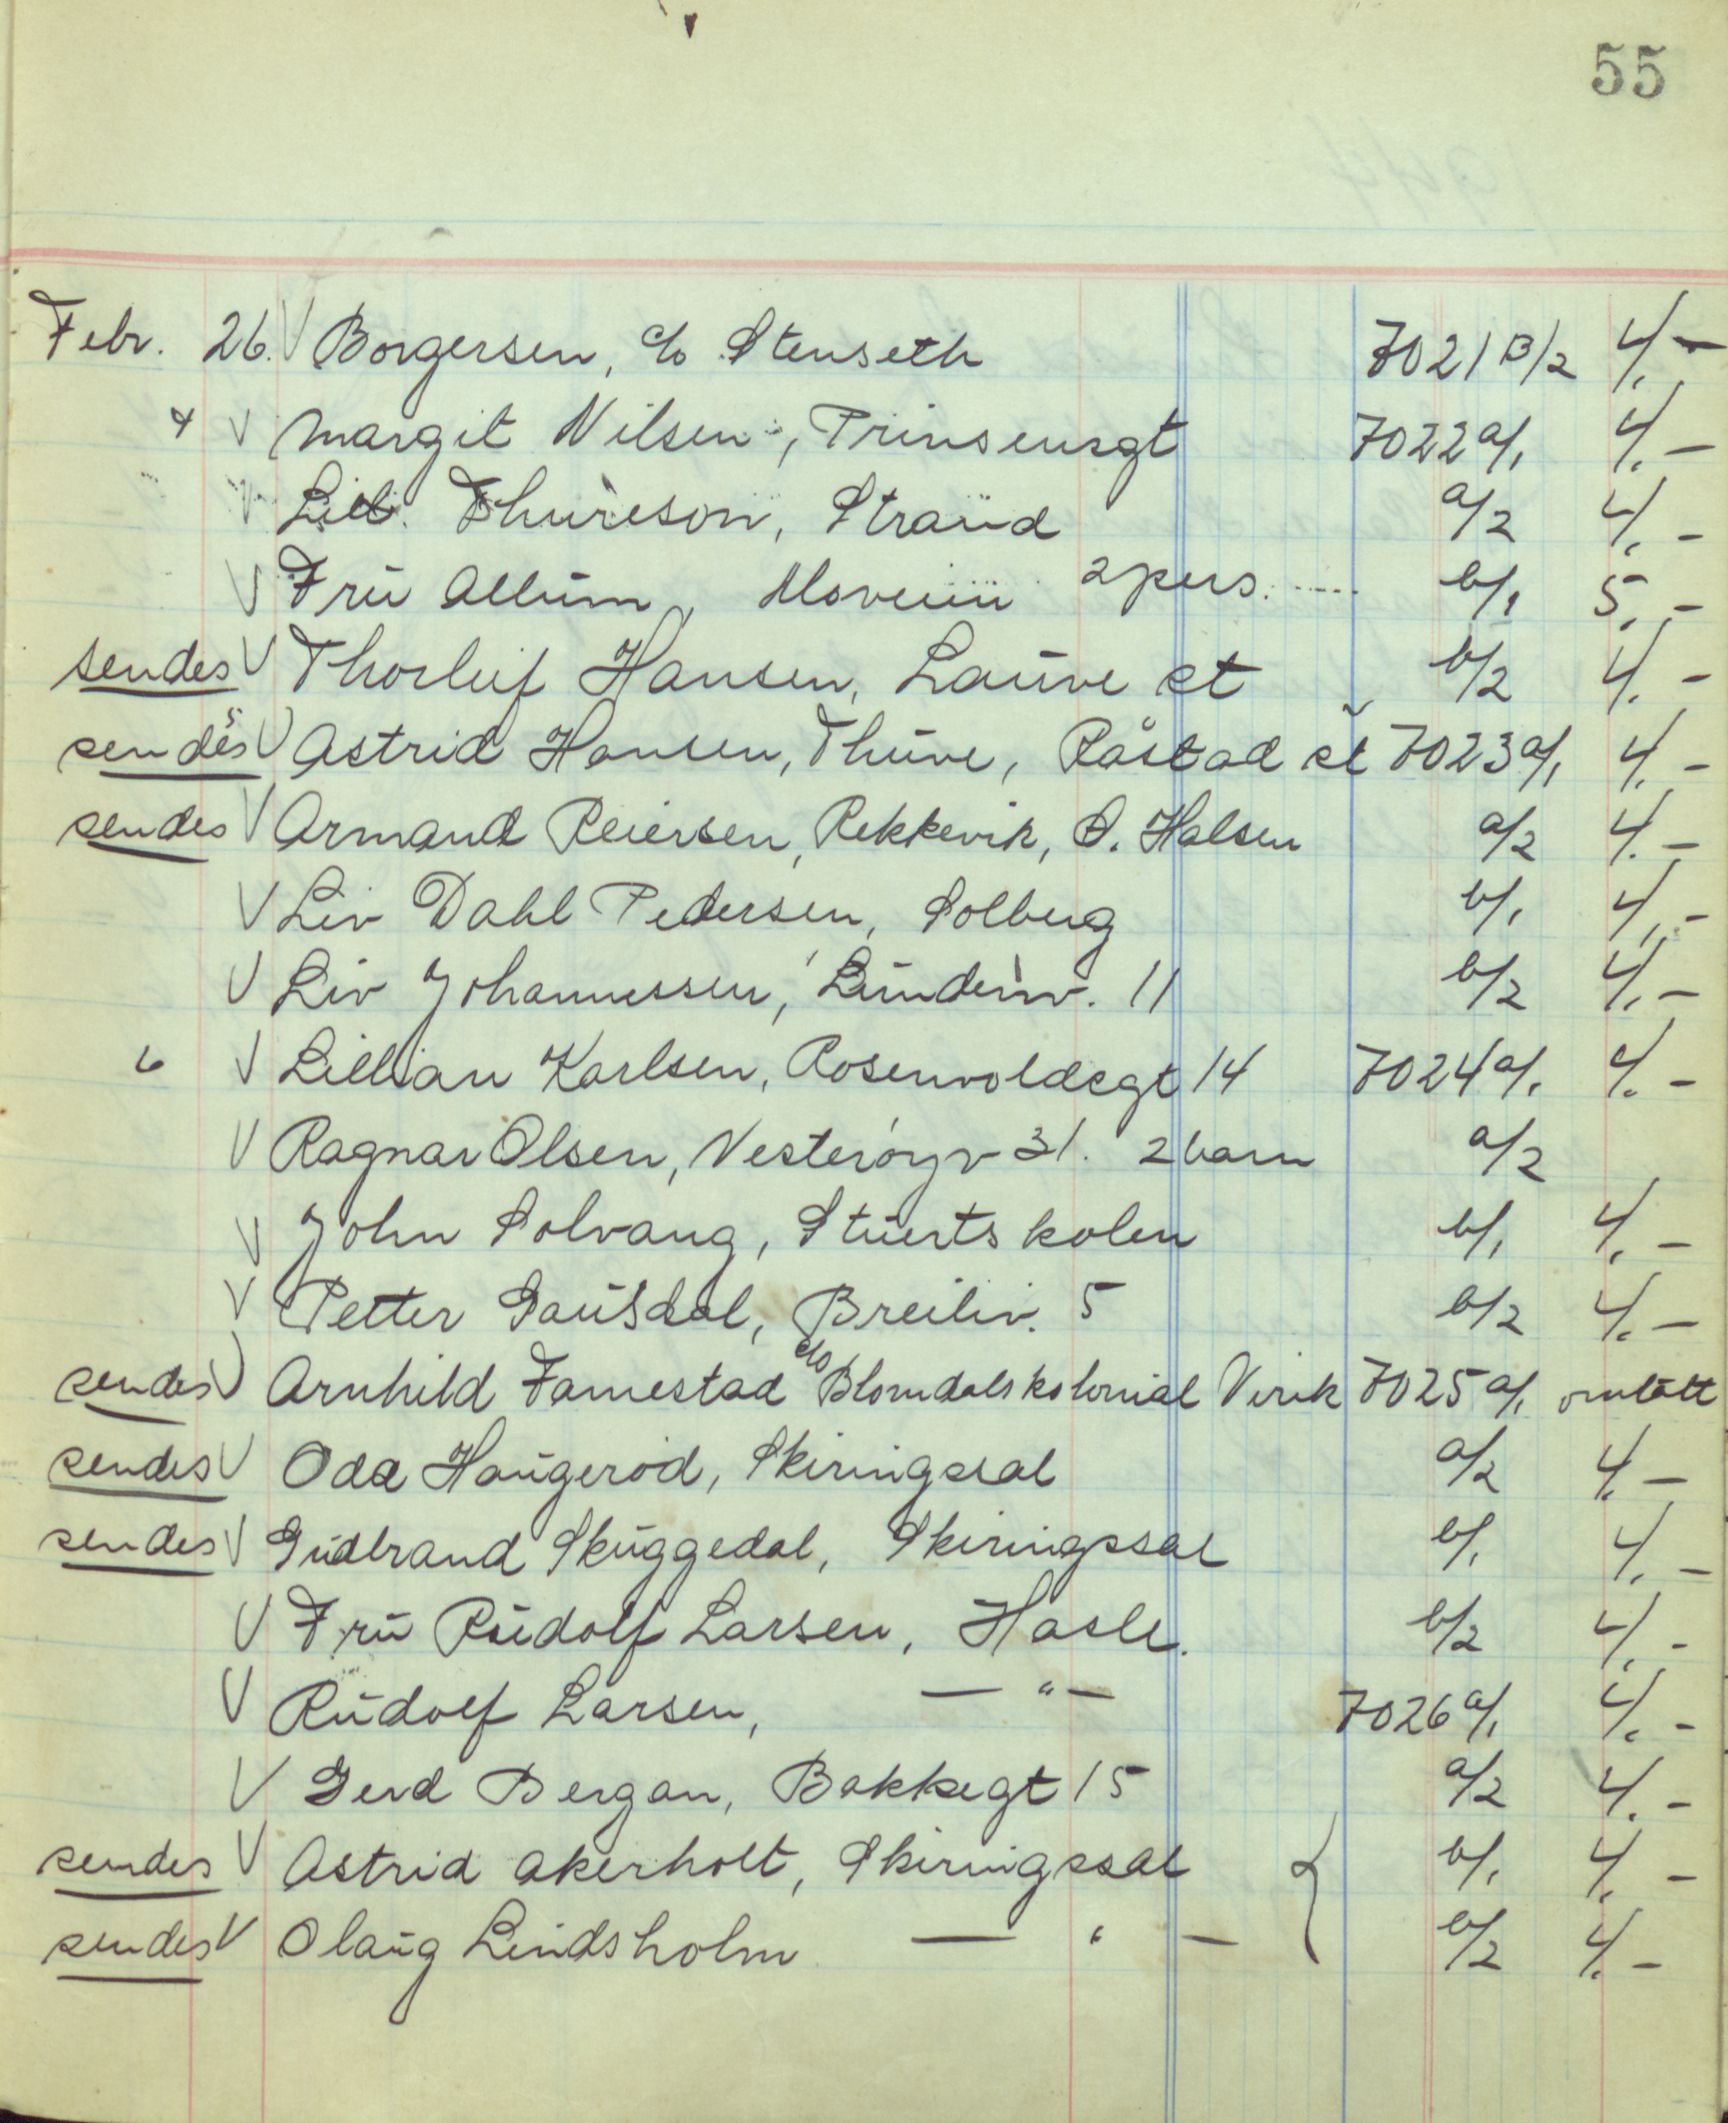 55
Febr. 26. V Borgersen, c/o Stenseth 7021 B/2 4.-
4 V Margit Nilsen, Prinsensgt 7022 a/1 4.-
V Thureson, Strand a/2 4.-
V Fru Allum, 2 pers. b/1 5.-
sendes V Thorleif Hansen, Lauve st b/2 4.-
sendes V Astrid Hansen, Thuve, Råstad st 7023 a/1 4.-
sendes V Armand Reiersen, Rekkevik, Ø. Halsen a/2 4.-
V Liv Dahl Pedersen, Solberg b/1 4.-
V Liv Johannessen, Lundenv. 11 b/2 4.-
6 V Lillian Karlsen, Rosenvoldsgt 14 7024 a/1 4.-
V Ragnar Olsen, Vesterøyv 31. 2 barn a/2
V John Solvang, Stuertskolen b/1 4.-
V Petter Gausdal, Breiliv. 5 b/2 4.-
sendes V Arnhild Famestad c/o Blomdals kolonial Virik 7025 a/1 omtatt
sendes V Oda Haugerød, Skiringssal a/2 4.-
sendes V Gudbrand Skuggedal, Skiringssal b/1 4.-
V Fru Rudolf Larsen, Hasle. b/2 4.-
V Rudolf Larsen, — " — 7026 a/1 4.-
V Gerd Bergan, Bakkegt 15 a/2 4.-
sendes V Astrid Akerholt, Skiringssal b/1 4.-
sendes V Olaug Lindsholm — " — b/2 4.-